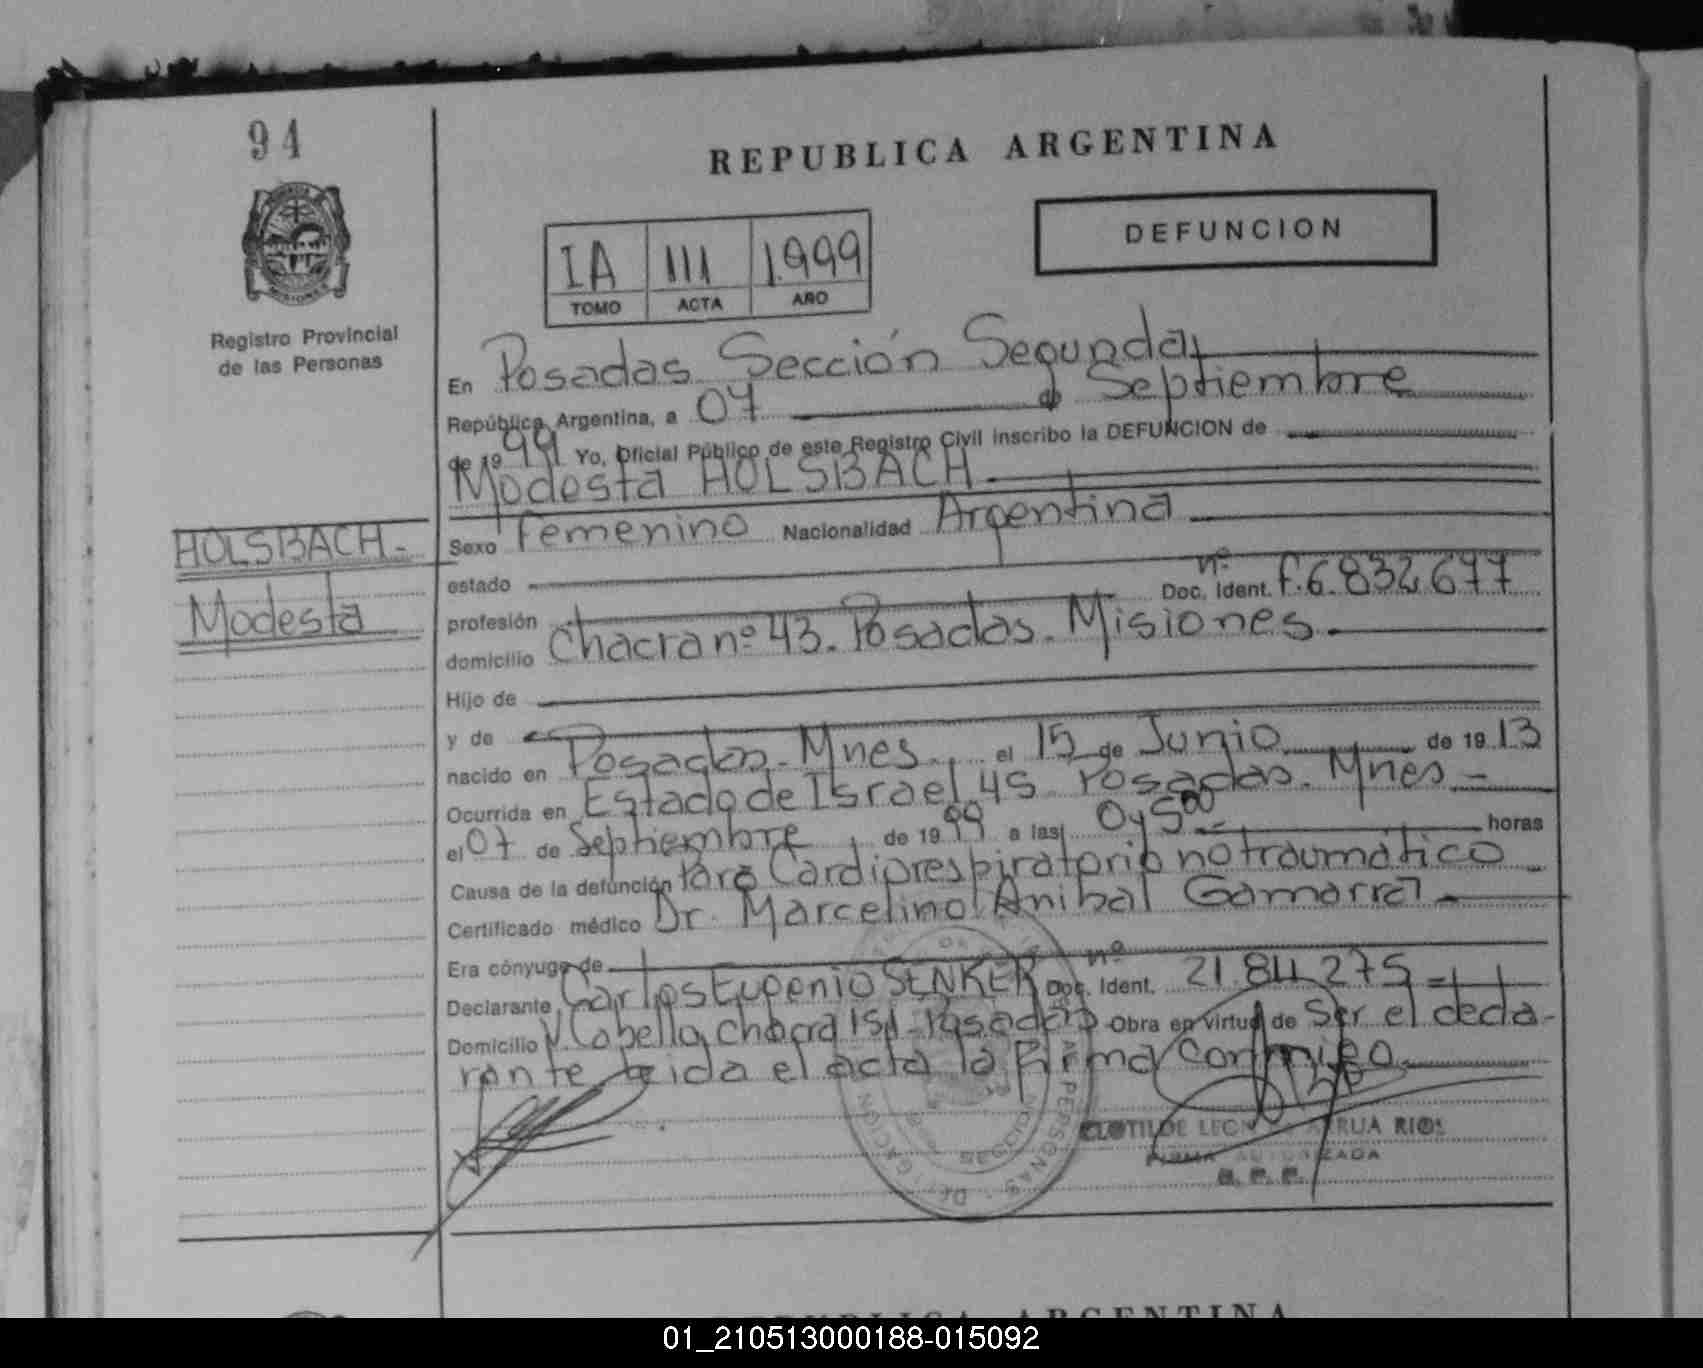 94
REPUBLICA ARGENTINA
DEFUNCION
IA 111 1.999
TOMO ACTA AÑO
Registro Provincial
de las Personas
En Posadas Sección Segunda,
República Argentina, a 07 d Septiembre
de 1999 Yo, Oficial Público de este Registro Civil inscribo la DEFUNCION de
Modesta HOLSBACH.
HOLSBACH-
Modesta
Sexo femenino Nacionalidad Argentina
estado
profesión Doc. Ident. nº F.6.832.677
domicilio Chacra nº 43. Posadas. Misiones.
Hijo de
y de
nacido en Posadas. Mnes. el 15 de Junio de 1913
Ocurrida en Estado de Israel 45 Posadas. Mnes.-
el 07 de Septiembre de 1999 a las 04 500 horas
Causa de la defunción Paro Cardiorespiratorio no traumático
Certificado médico Dr. Marcelino Anibal Gamarra
Era cónyuge de
Declarante Carlos Eugenio SENKER Doc. Ident. nº 21.841.275
Domicilio V. Cabello chacra 151-Posadas Obra en virtud de Ser el decla-
rante leida el acta la firma conmigo.
CLOTILDE RIOS
FIRMA AUTORIZADA
01_210513000188-015092